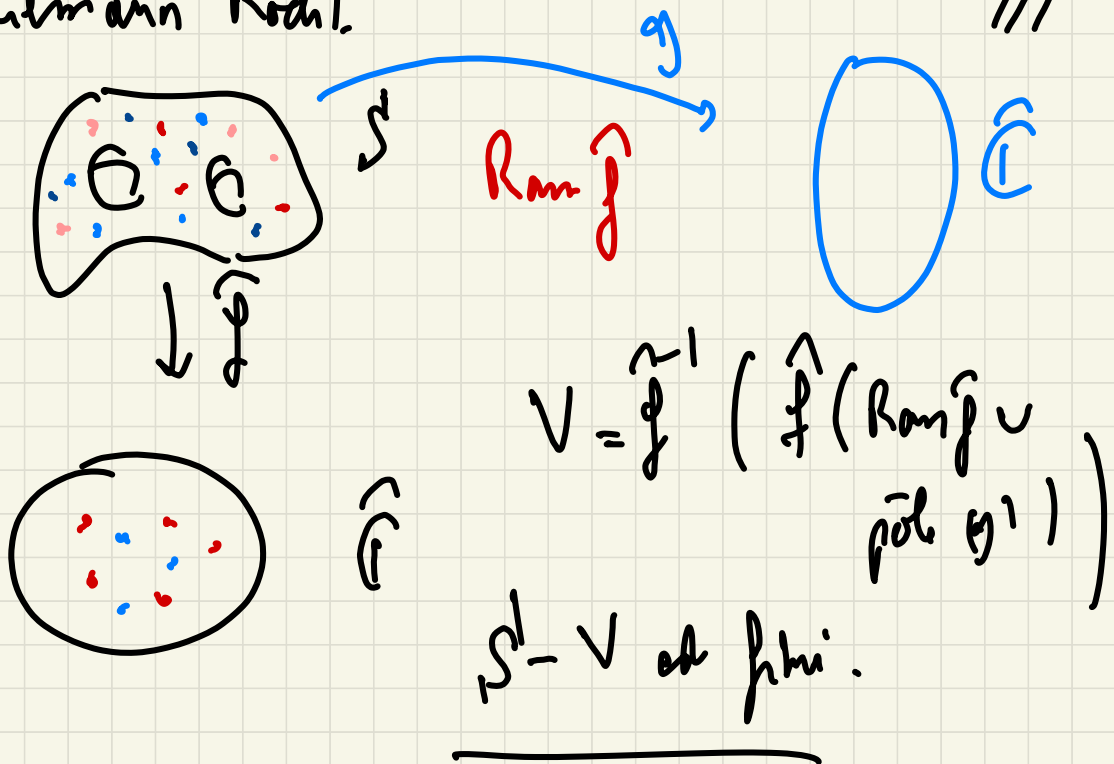 Riemann Roch.
g
S
Ram f̂
Ĉ
f̂
V = f̂⁻¹ ( f̂ ( Ram f̂ ∪
pôle g ) )
Ĉ
S - V est fini.